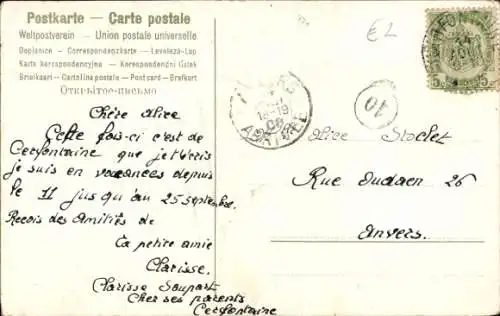 Postkarte — Carte postale
Weltpostverein — Union postale universelle
Dopisnice — Correspondenzkarte — Levelező-Lap
Karta korespondencyjna — Korespondenční lístek
Brievkaart — Cartolina postale — Post card — Brefkort
Открытое письмо
£2
5
5
10
Chère Alice
Cette fois-ci c'est de
Cerfontaine que je t'écris
je suis en vacances depuis
le 11 jusqu'au 25 septembre.
Recois des Amitiés de
Ta petite amie
Clarisse.
Clarisse Soupart
Cher ses parents
Cerfontaine
Alice Stochet
Rue Oudaen 26
Anvers.